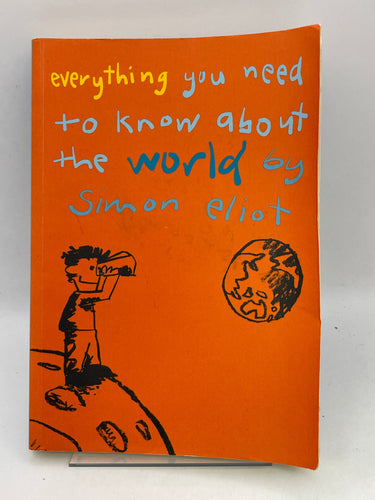 everything you need
to know about
the world by
simon eliot